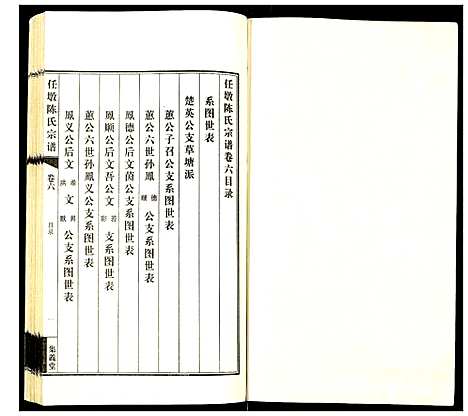 任墩陈氏宗谱卷六目录
系图世表
楚英公支草塘派
蕙公子召公支系图世表
蕙公六世孙鳳德順公支系图世表
鳳德公后文茵公支系图世表
鳳順公后文吾公文若彩支系图世表
蕙公六世孙鳳义公支系图世表
鳳义公后文洪文昇默公支系图世表
任墩陈氏宗谱
卷六
目录
一
集義堂